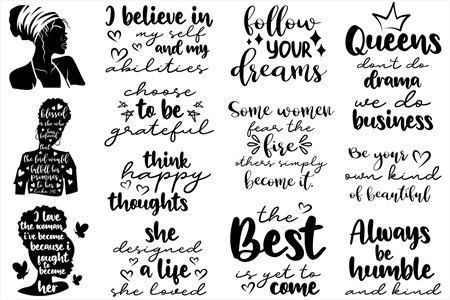 I believe in
my self
and my
abilities
follow
YOUR
dreams
Queens
don't do
drama
we do
business
blessed
is she who
has
believed
that
the lord would
fulfill his
promises
to her
choose
to be
grateful
Some women
fear the
fire
others simply
become it.
Be your
own kind
of beautiful
think
happy
thoughts
I love
the woman
i've become
because i
fought to
become
her
she
designed
a life
she loved
the
Best
is yet to
come
Always
be
humble
and kind